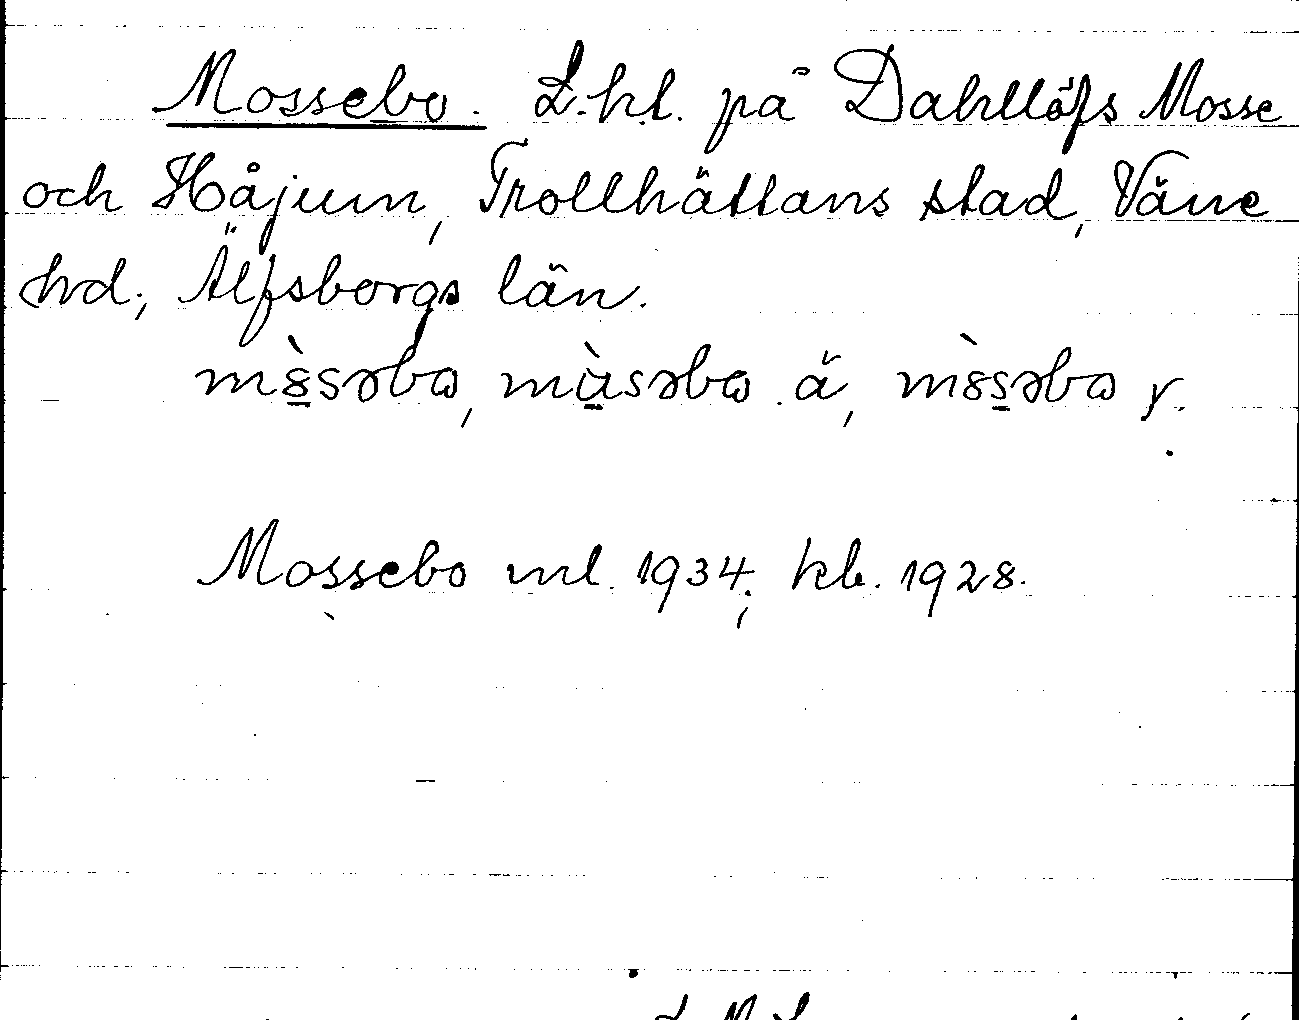 Mossebo. L.hl. på Dahllöfs Mosse
och Håjum, Trollhättans stad, Väne
hd, Älfsborgs län.
m&#x300;8səbɷ, mùsəbɷ ä, m8̀səbɷ y.
Mossebo ml. 1934; kb. 1928.